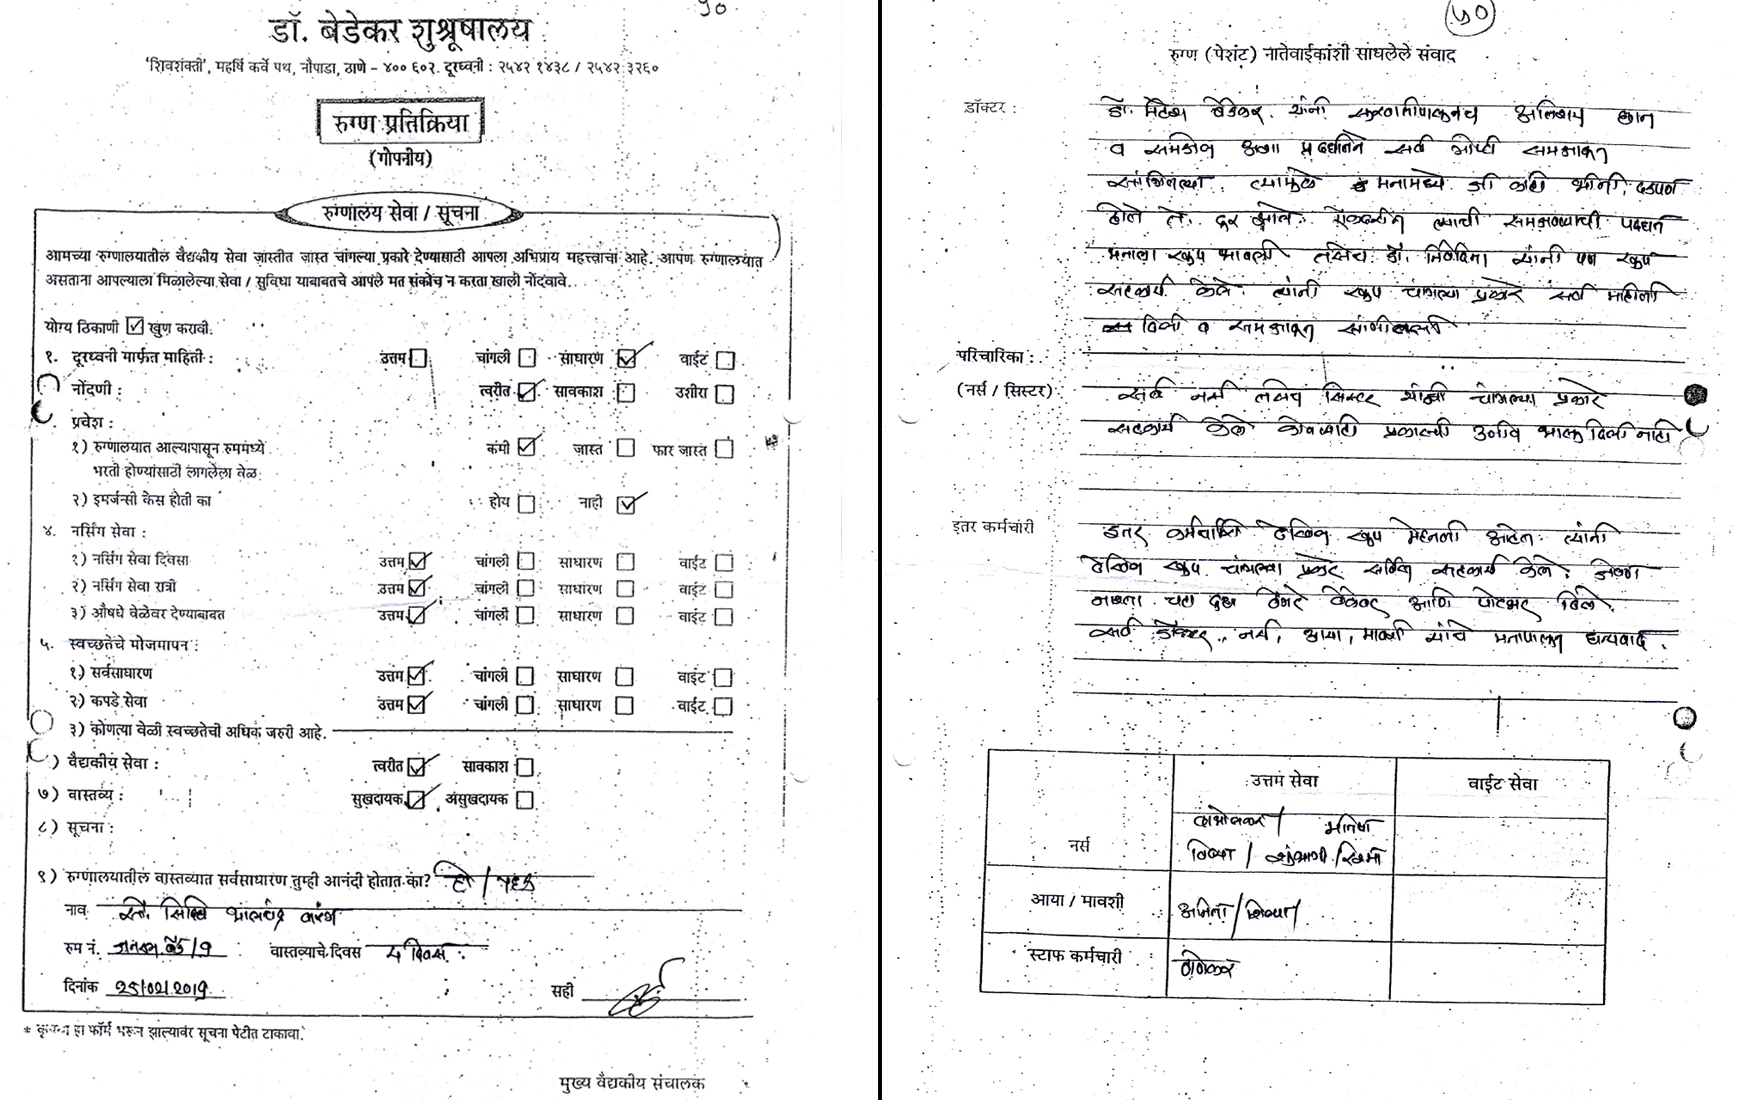 ५०
डॉ. बेडेकर शुश्रूषालय
'शिवशक्ती', महर्षि कर्वे पथ, नौपाडा, ठाणे - ४०० ६०२. दूरध्वनी : २५४२ १४३८ / २५४२ ३२६०
रुग्ण प्रतिक्रिया
(गोपनीय)
रुग्णालय सेवा / सूचना
आमच्या रुग्णालयातील वैद्यकीय सेवा जास्तीत जास्त चांगल्या प्रकारे देण्यासाठी आपला अभिप्राय महत्त्वाचा आहे. आपण रुग्णालयात
असताना आपल्याला मिळालेल्या सेवा / सुविधा याबाबतचे आपले मत संकोच न करता खाली नोंदवावे.
योग्य ठिकाणी ☑ खुण करावी.
१. दूरध्वनी मार्फत माहिती : उत्तम ☐ चांगली ☐ साधारण ☑ वाईट ☐
नोंदणी : त्वरीत ☑ सावकाश ☐ उशीरा ☐
प्रवेश :
१) रुग्णालयात आल्यापासून रुममध्ये कमी ☑ जास्त ☐ फार जास्त ☐
भरती होण्यांसाठी लागलेला वेळ
२) इमर्जन्सी केस होती का होय ☐ नाही ☑
४. नर्सिंग सेवा :
१) नर्सिंग सेवा दिवसा उत्तम ☑ चांगली ☐ साधारण ☐ वाईट ☐
२) नर्सिंग सेवा रात्री उत्तम ☑ चांगली ☐ साधारण ☐ वाईट ☐
३) औषधे वेळेवर देण्याबाबत उत्तम ☑ चांगली ☐ साधारण ☐ वाईट ☐
५. स्वच्छतेचे मोजमापन :
१) सर्वसाधारण उत्तम ☑ चांगली ☐ साधारण ☐ वाईट ☐
२) कपडे सेवा उत्तम ☑ चांगली ☐ साधारण ☐ वाईट ☐
३) कोणत्या वेळी स्वच्छतेची अधिक जरुरी आहे.
) वैद्यकीय सेवा : त्वरीत ☑ सावकाश ☐
७) वास्तव्य : सुखदायक ☑ असुखदायक ☐
८) सूचना :
९) रुग्णालयातील वास्तव्यात सर्वसाधारण तुम्ही आनंदी होतात का? हो /
नाव सौ. सिद्धि भालचंद्र
रुम नं. वास्तव्याचे दिवस ५ दिवस
दिनांक 25/02/2019 सही
* कृपया हा फॉर्म भरून झाल्यावर सूचना पेटीत टाकावा.
मुख्य वैद्यकीय संचालक
५०
रुग्ण (पेशंट) नातेवाईकांशी साधलेले संवाद
डॉक्टर : डॉ. बेडेकर यांनी सुरवातीपासूनच अतिशय छान
व समजेल अशा पद्धतीने सर्व गोष्टी समजावून
सांगितल्या. त्यामुळे मनामध्ये जी काही भीती, दडपण
होते ते दूर झाले. त्यांची समजावण्याची पद्धत
मनाला खूप भावली तसेच डॉ. निवेदिता यांनी पण खूप
सहकार्य केले. त्यांनी खूप चांगल्या प्रकारे सर्व माहिती
दिली व समजावून सांगितली
परिचारिका :
(नर्स / सिस्टर) सर्व नर्स तसेच सिस्टर यांनी चांगल्या प्रकारे
सहकार्य केले कोणत्याही प्रकारची उणीव भासू दिली नाही
इतर कर्मचारी इतर कर्मचारी देखिल खूप मेहनती आहेत. त्यांनी
देखिल खूप चांगल्या प्रकारे सहकार्य केले. जेवण
नाश्ता चहा दूध वेळेवर आणि पोटभर दिले.
सर्व डॉक्टर, नर्स, आया, मावशी यांचे मनापासून धन्यवाद.
उत्तम सेवा वाईट सेवा
नर्स / मनिषा
दिव्या / शुभांगी / रेश्मा
आया / मावशी अनिता /
स्टाफ कर्मचारी